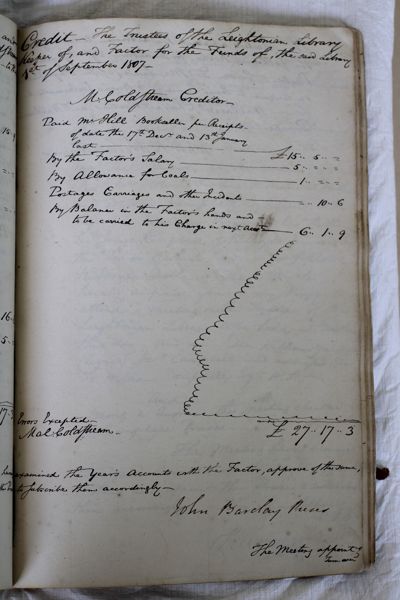 Credit – The Trustees of the Leightonian Library
Keeper of, and Factor for the Funds of, the said Library
1st of September 1807 –
Mr Coldstream Creditor –
Paid Mr Hill Bookseller per Receipts
of date the 17th Decr and 13th January
last £15 .. 5 .. =
By the Factor's Salary 5 .. = .. =
By Allowance for Coals 1 .. = .. =
Postages Carriages and other Incidents = .. 10 .. 6
By Balance in the Factor's hands and
to be carried to his Charge in next Acct 6 .. 1 .. 9
Errors Excepted
Mal: Coldstream –
£ 27 .. 17 .. 3
examined the Year's Accounts with the Factor, approve of the same,
to subscribe them accordingly –
John Barclay
The Meeting appoint
Turn over